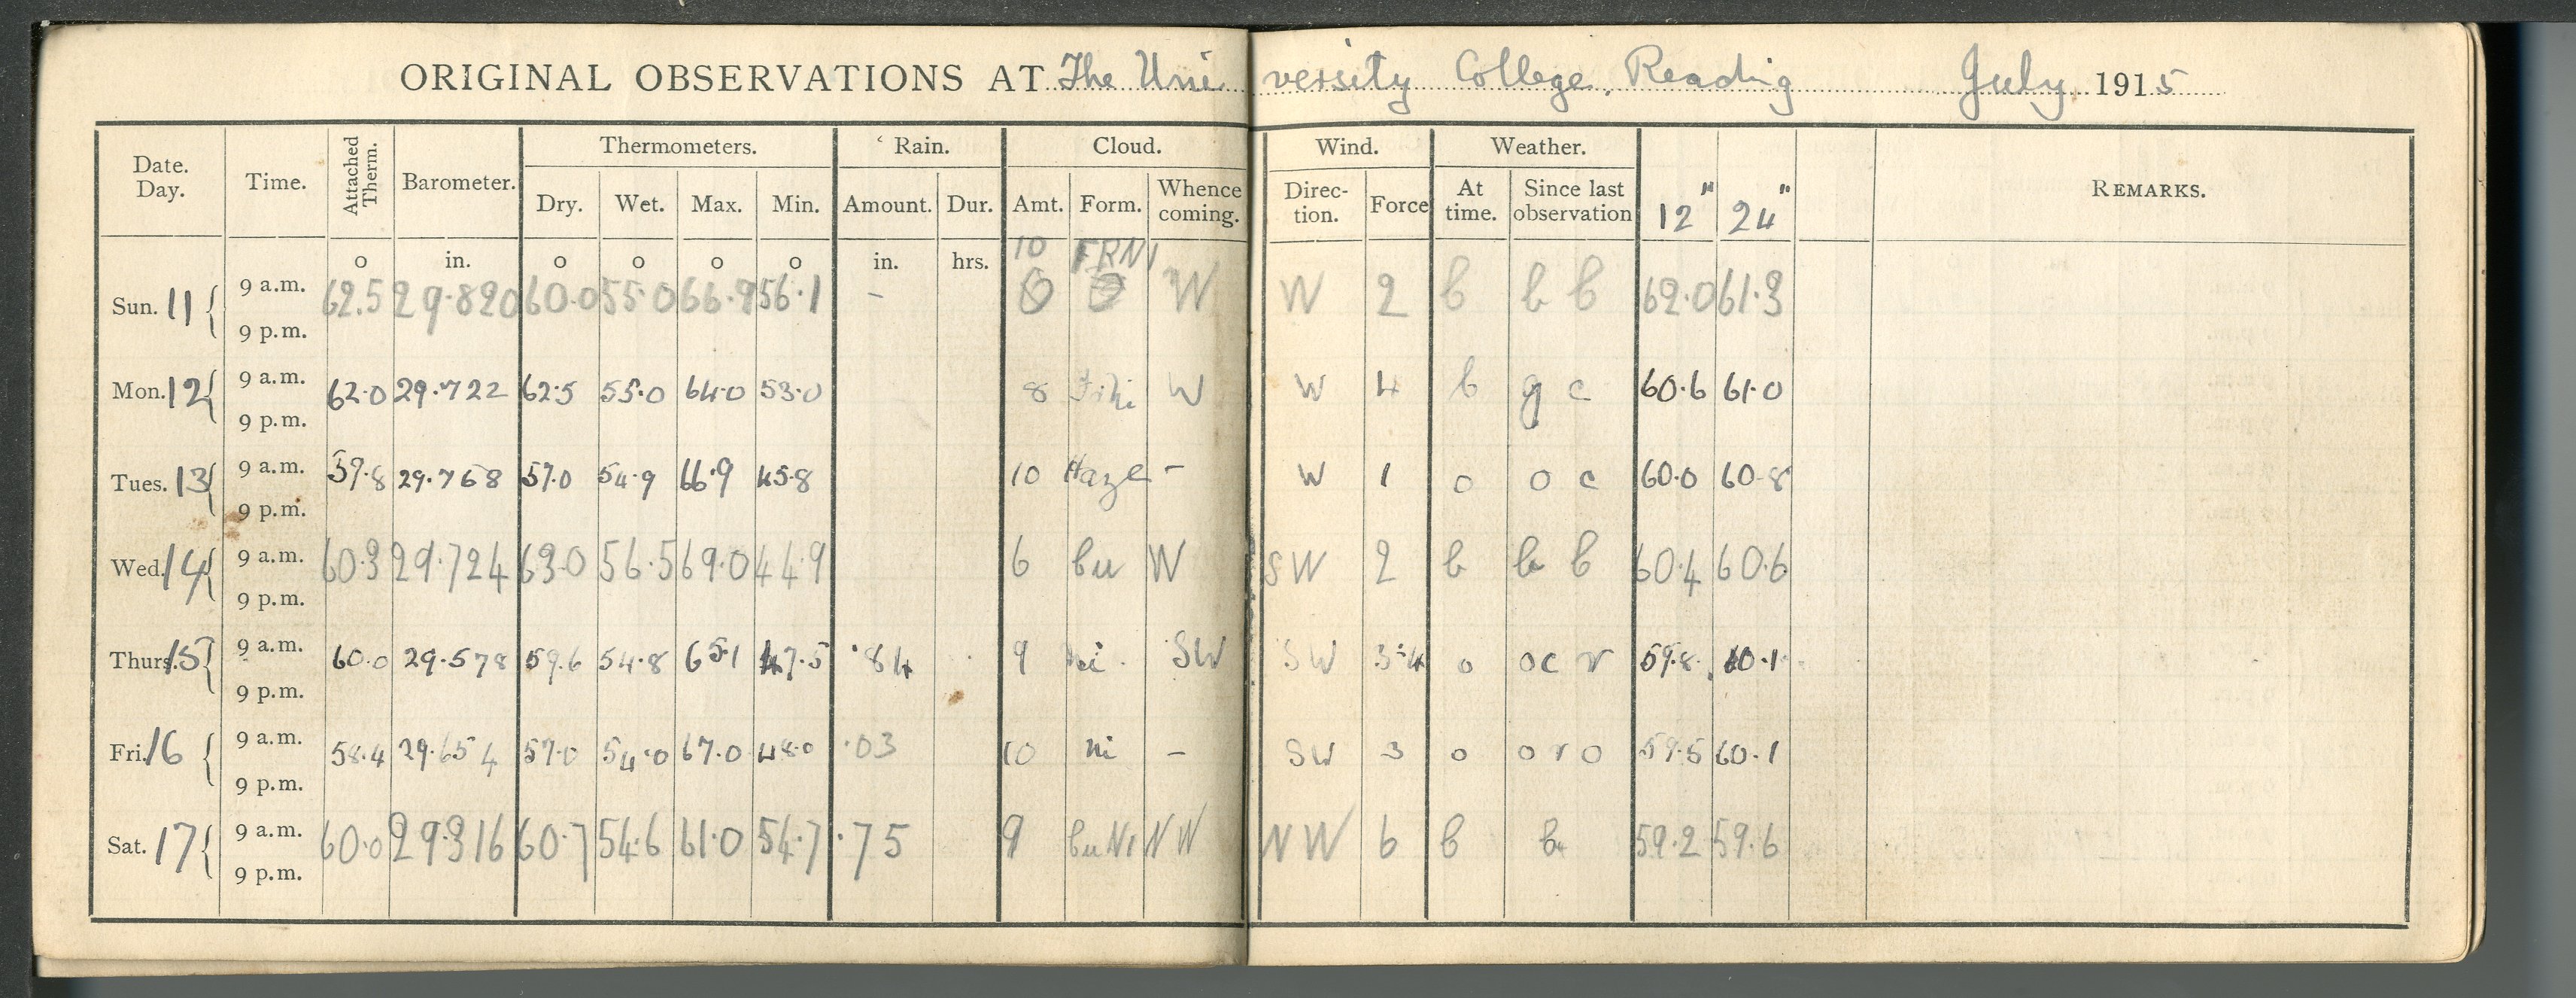 ORIGINAL OBSERVATIONS AT The University College, Reading July 1915
Date. Day. Time. Attached Therm. Barometer. Thermometers. Rain. Cloud. Wind. Weather. 12" 24" REMARKS.
Dry. Wet. Max. Min. Amount. Dur. Amt. Form. Whence coming. Direc-tion. Force At time. Since last observation
o in. o o o o in. hrs. 10 FRNI
Sun. 11 { 9 a.m. 62.5 29.820 60.0 55.0 66.9 56.1 - W W 2 b b b 62.0 61.3
9 p.m.
Mon. 12 { 9 a.m. 62.0 29.722 62.5 55.0 64.0 53.0 8 W W 4 b g c 60.6 61.0
9 p.m.
Tues. 13 { 9 a.m. 59.8 29.768 57.0 54.9 66.9 45.8 10 Haze - W 1 o o c 60.0 60.8
9 p.m.
Wed. 14 { 9 a.m. 60.3 29.724 63.0 56.5 69.0 44.9 6 cu W SW 2 b b b 60.4 60.6
9 p.m.
Thurs. 15 { 9 a.m. 60.0 29.578 59.6 54.8 65.1 47.5 .84 9 ni SW SW 3-4 o oc r 59.8 60.1
9 p.m.
Fri. 16 { 9 a.m. 58.4 29.654 57.0 54.0 67.0 48.0 .03 10 ni - SW 3 o o r o 59.5 60.1
9 p.m.
Sat. 17 { 9 a.m. 60.0 29.316 60.7 54.6 61.0 54.7 .75 9 cuNi NW NW 6 b b 59.2 59.6
9 p.m.